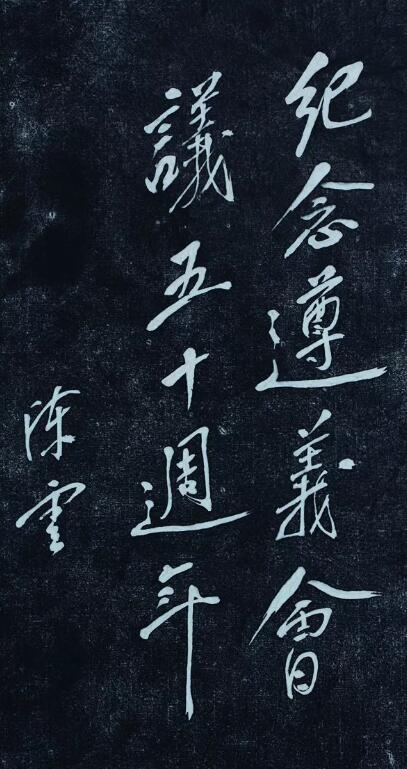 紀念遵義會
議五十週年
陳雲